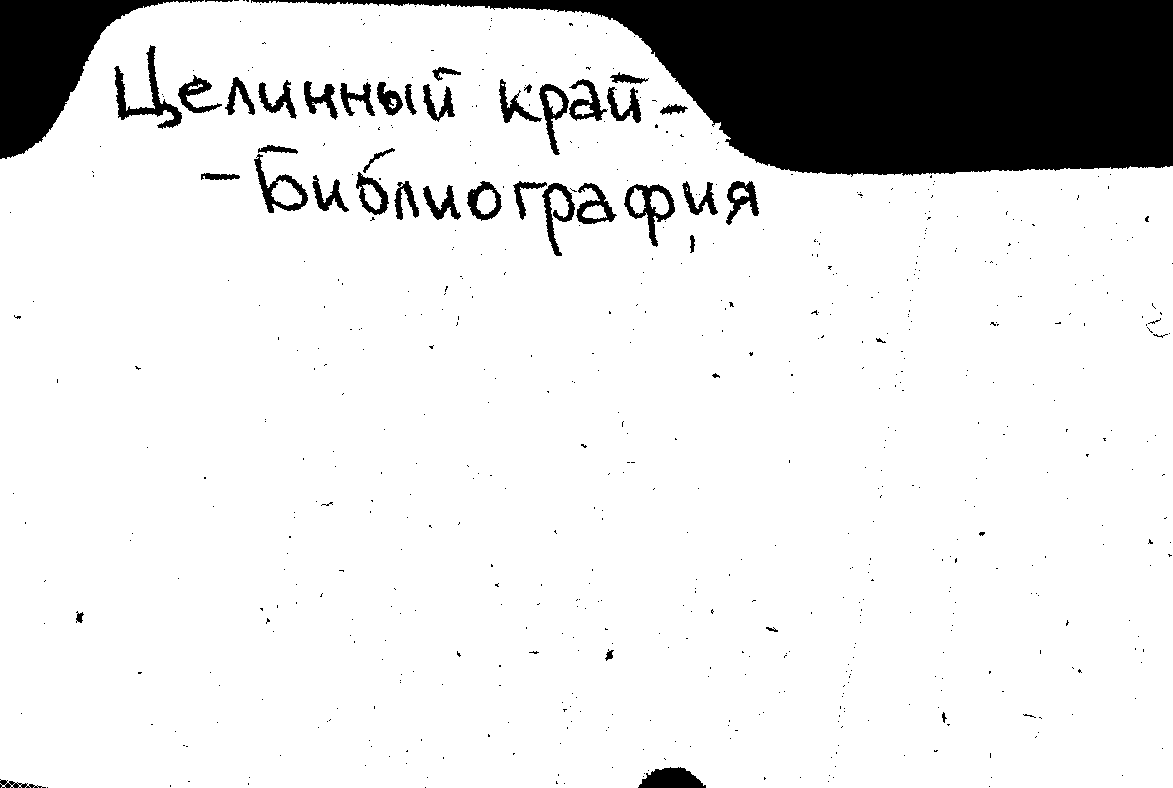 Целинный край -
- Библиография